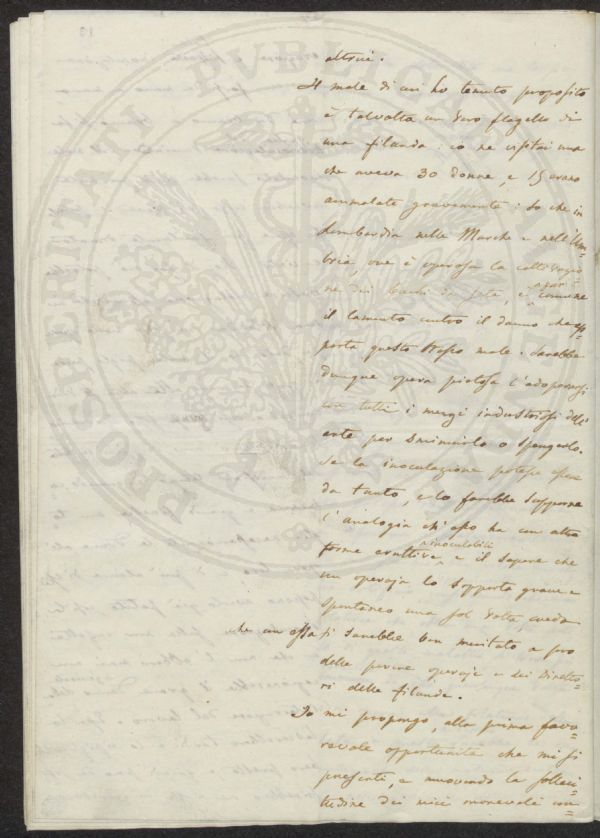 altrui.
Il male di cui ho tenuto proposito
è talvolta un vero flagello di
una filanda: io ne visitai una
che aveva 30 donne, e 15 erano
ammalate gravemente: So che in
Lombardia nelle Marche e nell'Um=
bria, ove è operosa la coltivazio
ne dei bachi da seta, è pur comune
il lamento contro il danno che ap=
porta questo stesso male. Sarebbe
dunque opera pietosa l'adoperarsi
con tutti i mezzi industriosi dell'
arte per sminuirlo o spegnerlo.
Se la inoculazione potesse essere
da tanto, e lo farebbe supporre
l'analogia ch'esso ha con altre
forme eruttive inoculabili, e il sapere che
un operaja lo sopporta grave e
spontaneo una sol volta, credo
che con essa si sarebbe ben meritato a pro
delle povere operaje e dei Diretto=
ri delle filande.
Io mi propongo, alla prima favo=
revole opportunità che mi si
presenti, e movendo la solleci=
tudine dei miei onorevoli con=
PROSPERITATI PVBLICAE